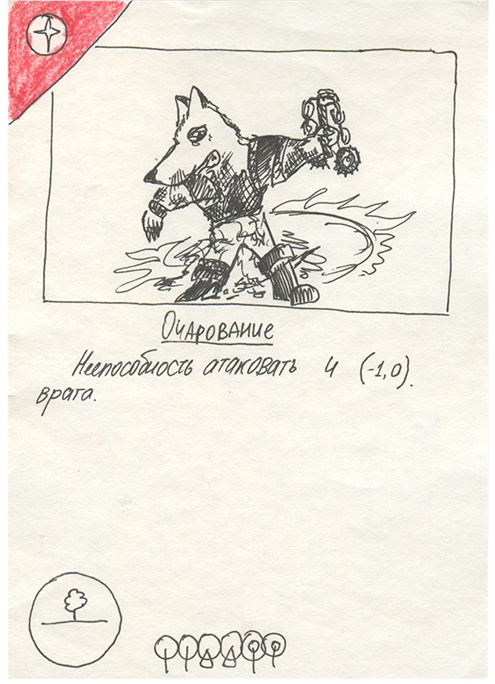 Очарование
Неспособность атаковать и (-1,0).
врага.